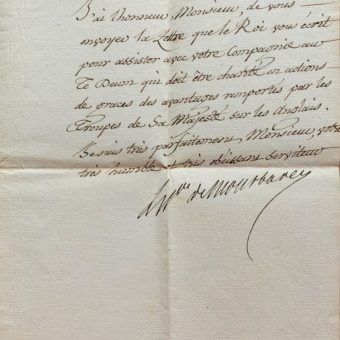 J'ai l'honneur, Monsieur, de vous
envoyer la Lettre que le Roi vous écrit
pour assister avec votre Compagnie au
Te Deum qui doit être chanté en actions
de graces des avantages remportés par les
Troupes de Sa Majesté sur les Anglais.
Je suis très parfaitement, Monsieur, votre
très humble et très obéissant serviteur
le Pce de Montbarey